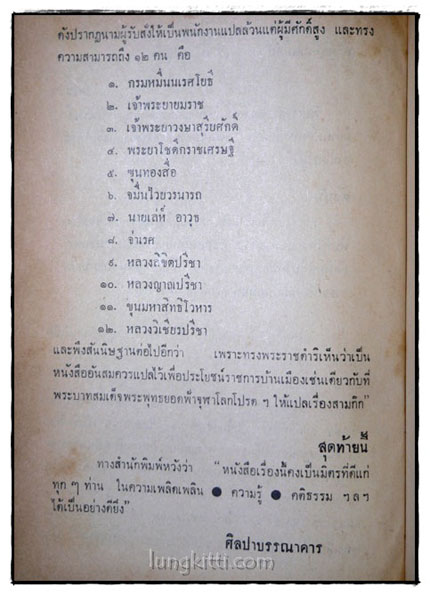 ดังปรากฏนามผู้รับสั่งให้เป็นพนักงานแปลล้วนแต่ผู้มีศักดิ์สูง และทรง
ความสามารถถึง ๑๒ คน คือ
๑. กรมหมื่นนเรศโยธี
๒. เจ้าพระยายมราช
๓. เจ้าพระยาวงษาสุริยศักดิ์
๔. พระยาโชดึกราชเศรษฐี
๕. ขุนทองสื่อ
๖. จมื่นไวยวรนารถ
๗. นายเล่ห์ อาวุธ
๘. จ่าเรศ
๙. หลวงลิขิตปรีชา
๑๐. หลวงญาณปรีชา
๑๑. ขุนมหาสิทธิโวหาร
๑๒. หลวงวิเชียรปรีชา
และพึงสันนิษฐานต่อไปอีกว่า เพราะทรงพระราชดำริเห็นว่าเป็น
หนังสืออันสมควรแปลไว้เพื่อประโยชน์ราชการบ้านเมืองเช่นเดียวกับที่
พระบาทสมเด็จพระพุทธยอดฟ้าจุฬาโลกโปรด ฯ ให้แปลเรื่องสามก๊ก"
สุดท้ายนี้
ทางสำนักพิมพ์หวังว่า "หนังสือเรื่องนี้คงเป็นมิตรที่ดีแก่
ทุก ๆ ท่าน ในความเพลิดเพลิน ● ความรู้ ● คติธรรม ฯลฯ
ได้เป็นอย่างดียิ่ง"
ศิลปาบรรณาคาร
lungkitti.com